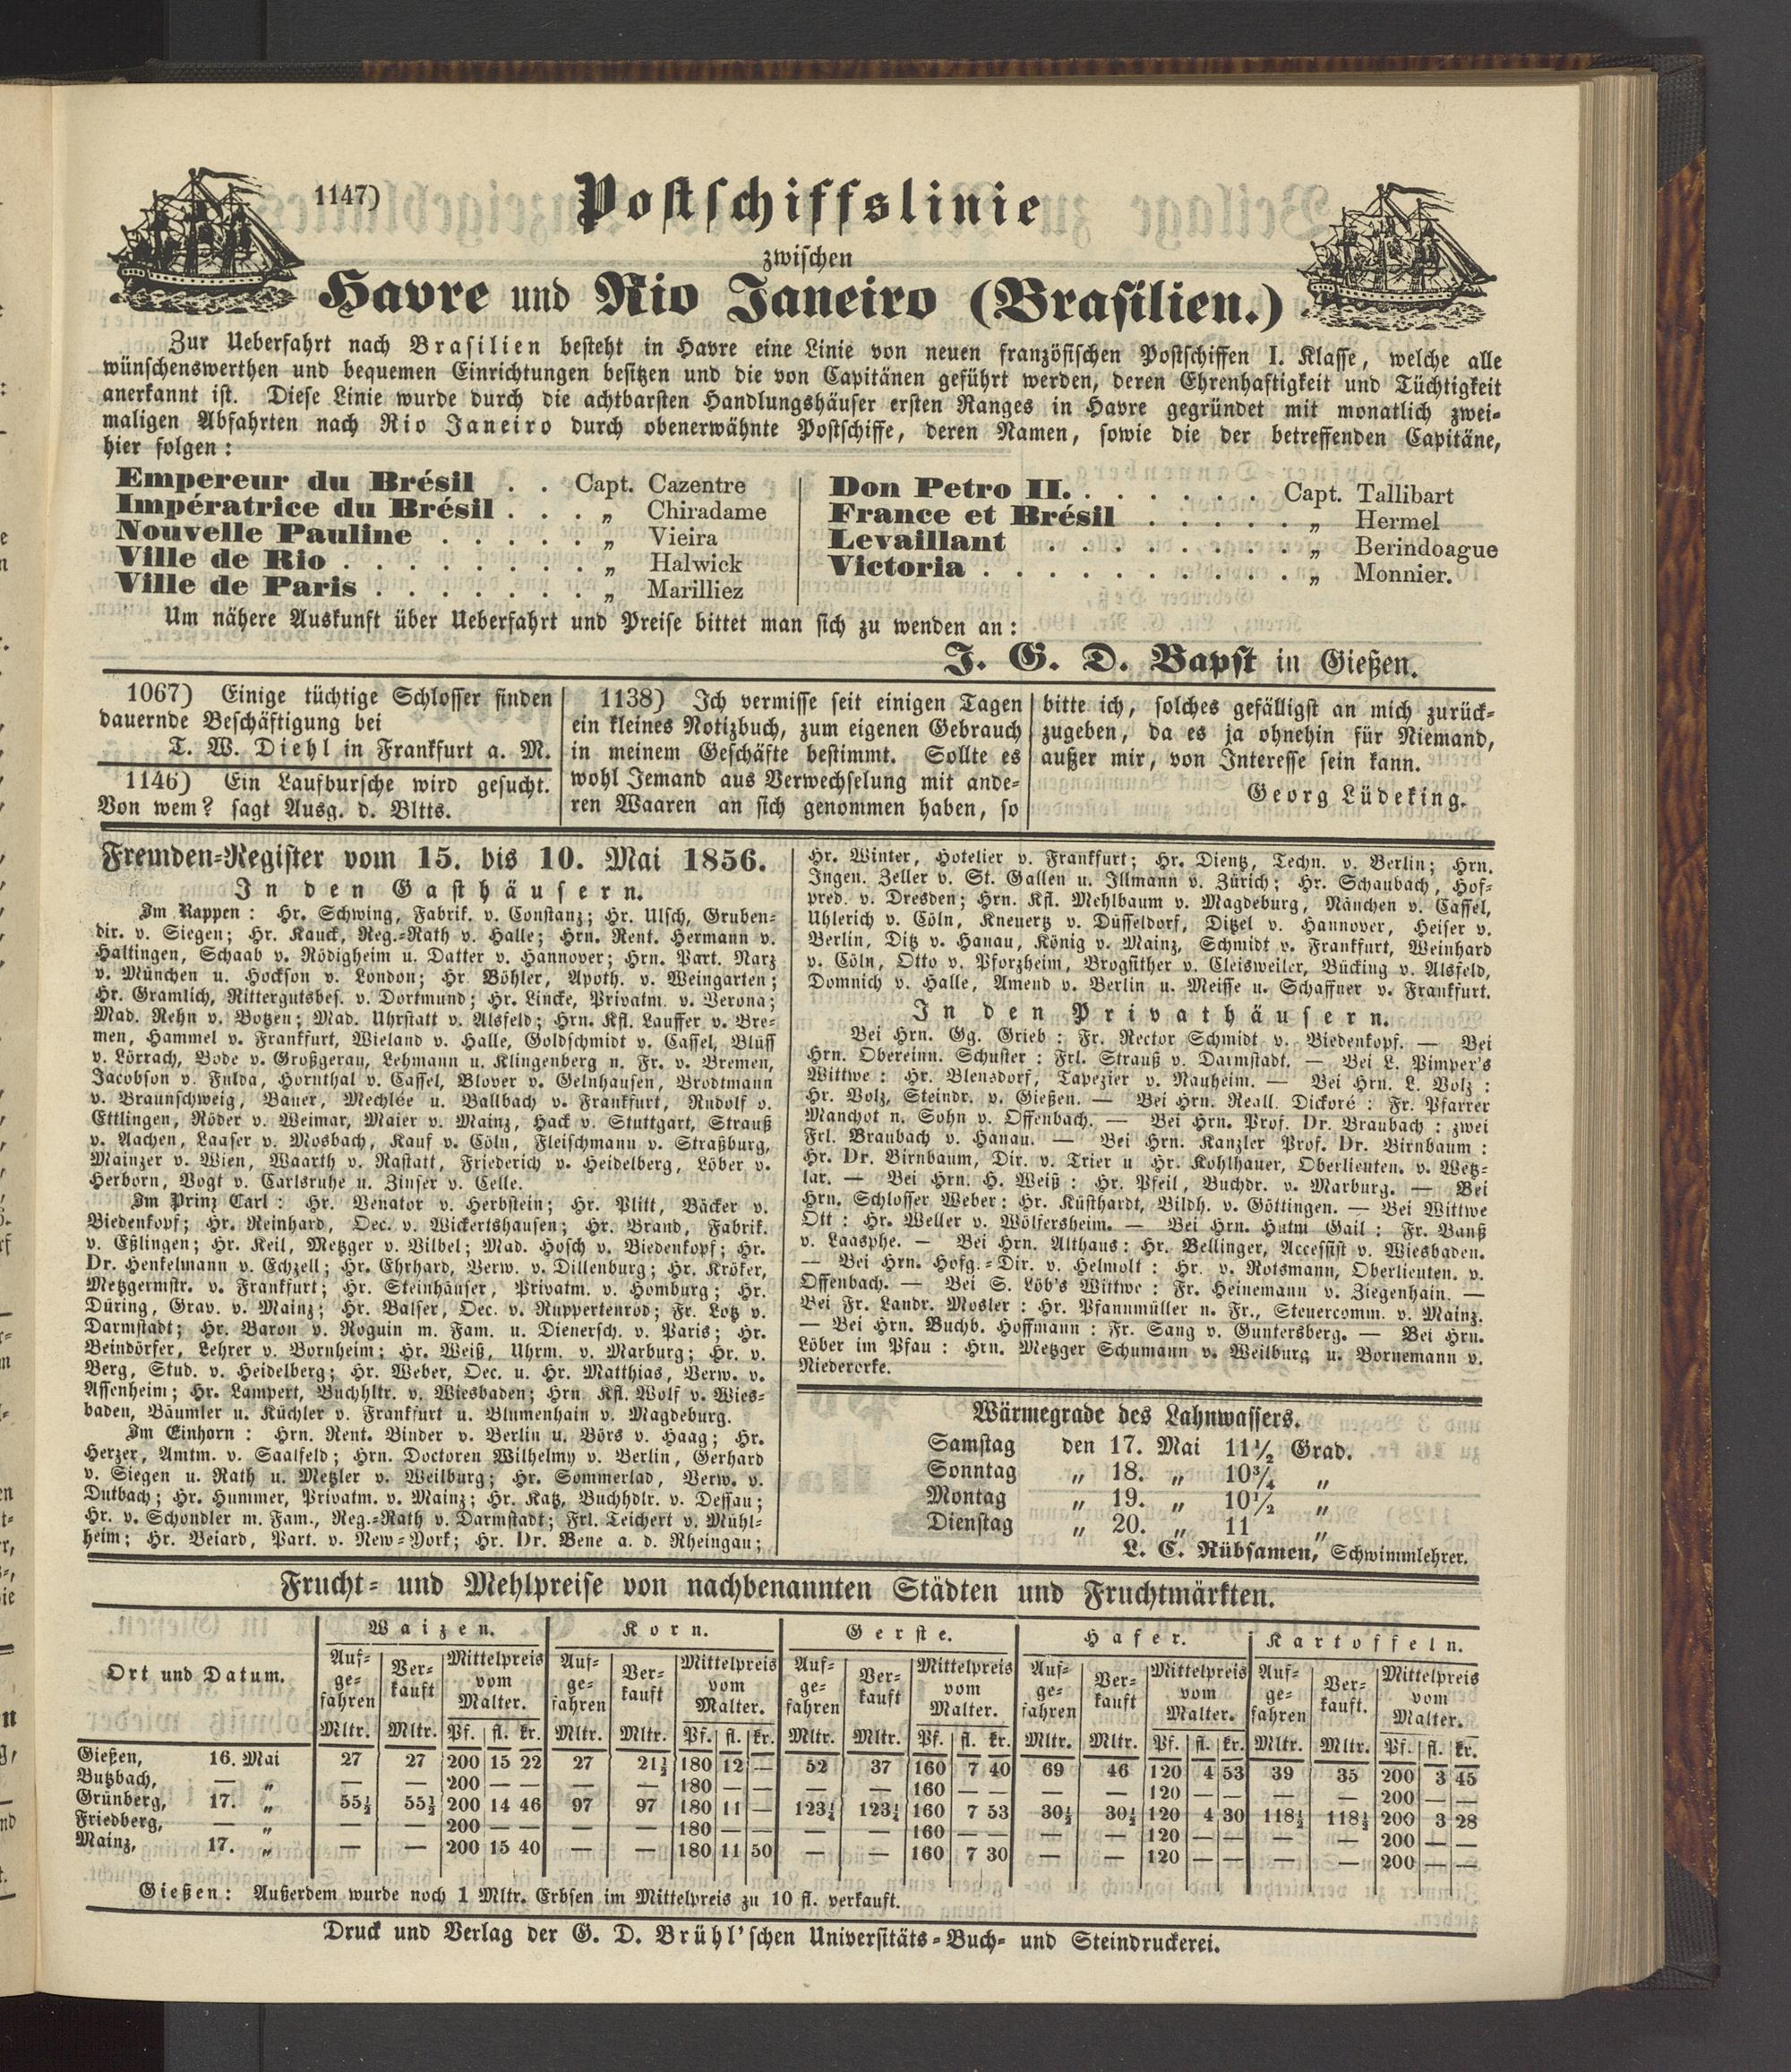 1147) Postschiffslinie
zwischen
Havre und Rio Janeiro (Brasilien.)
Zur Ueberfahrt nach Brasilien besteht in Havre eine Linie von neuen französischen Postschiffen I. Klasse, welche alle
wünschenswerthen und bequemen Einrichtungen besitzen und die von Capitänen geführt werden, deren Ehrenhaftigkeit und Tüchtigkeit
anerkannt ist. Diese Linie wurde durch die achtbarsten Handlungshäuser ersten Ranges in Havre gegründet mit monatlich zwei-
maligen Abfahrten nach Rio Janeiro durch obenerwähnte Postschiffe, deren Namen, sowie die der betreffenden Capitäne,
hier folgen:
Empereur du Brésil . . Capt. Cazentre
Impératrice du Brésil . . . „ Chiradame
Nouvelle Pauline . . . . . „ Vieira
Ville de Rio . . . . . . . . „ Halwick
Ville de Paris . . . . . . . „ Marilliez
Don Petro II. . . . . . . Capt. Tallibart
France et Brésil . . . . . „ Hermel
Levaillant . . . . . . . . „ Berindoague
Victoria . . . . . . . . . . „ Monnier.
Um nähere Auskunft über Ueberfahrt und Preise bittet man sich zu wenden an:
J. G. D. Bapst in Gießen.
1067) Einige tüchtige Schlosser finden
dauernde Beschäftigung bei
T. W. Diehl in Frankfurt a. M.
1146) Ein Laufbursche wird gesucht.
Von wem? sagt Ausg. d. Bltts.
1138) Ich vermisse seit einigen Tagen
ein kleines Notizbuch, zum eigenen Gebrauch
in meinem Geschäfte bestimmt. Sollte es
wohl Jemand aus Verwechselung mit ande-
ren Waaren an sich genommen haben, so
bitte ich, solches gefälligst an mich zurück-
zugeben, da es ja ohnehin für Niemand,
außer mir, von Interesse sein kann.
Georg Lüdeking.
Fremden-Register vom 15. bis 10. Mai 1856.
In den Gasthäusern.
Im Rappen: Hr. Schwing, Fabrik. v. Constanz; Hr. Ulsch, Gruben-
dir. v. Siegen; Hr. Kauck, Reg.-Rath v. Halle; Hrn. Rent. Hermann v.
Haltingen, Schaab v. Rödigheim u. Datter v. Hannover; Hrn. Part. Narz
v. München u. Hockson v. London; Hr Böhler, Apoth. v. Weingarten;
Hr. Gramlich, Rittergutsbes. v. Dortmund; Hr. Lincke, Privatm. v. Verona;
Mad. Rehn v. Botzen; Mad. Uhrstatt v. Alsfeld; Hrn. Kfl. Lauffer v. Bre-
men, Hammel v. Frankfurt, Wieland v. Halle, Goldschmidt v. Cassel, Blüff
v. Lörrach, Bode v. Großgerau, Lehmann u. Klingenberg n. Fr. v. Bremen,
Jacobson v. Fulda, Hornthal v. Cassel, Blover v. Gelnhausen, Brodtmann
v. Braunschweig, Bauer, Mechlée u. Ballbach v. Frankfurt, Rudolf v.
Ettlingen, Röder v. Weimar, Maier v. Mainz, Hack v. Stuttgart, Strauß
v. Aachen, Laaser v. Mosbach, Kauf v. Cöln, Fleischmann v. Straßburg,
Mainzer v. Wien, Waarth v. Rastatt, Friederich v. Heidelberg, Löber v.
Herborn, Vogt v. Carlsruhe u. Zinser v. Celle.
Im Prinz Carl: Hr. Venator v. Herbstein; Hr. Plitt, Bäcker v.
Biedenkopf; Hr. Reinhard, Oec. v. Wickertshausen; Hr. Brand, Fabrik.
v. Eßlingen; Hr. Keil, Metzger v. Vilbel; Mad. Hosch v. Biedenkopf; Hr.
Dr. Henkelmann v. Echzell; Hr. Ehrhard, Verw. v. Dillenburg; Hr. Kröker,
Metzgermstr. v. Frankfurt; Hr. Steinhäuser, Privatm. v. Homburg; Hr.
Düring, Grav. v. Mainz; Hr. Balser, Oec. v. Ruppertenrod; Fr. Lotz v.
Darmstadt; Hr. Baron v. Roguin m. Fam. u. Dienersch. v. Paris; Hr.
Beindörfer, Lehrer v. Bornheim; Hr. Weiß, Uhrm. v. Marburg; Hr. v.
Berg, Stud. v. Heidelberg; Hr. Weber, Oec. u. Hr. Matthias, Verw. v.
Assenheim; Hr. Lampert, Buchhltr. v. Wiesbaden; Hrn Kfl. Wolf v. Wies-
baden, Bäumler u. Küchler v. Frankfurt u. Blumenhain v. Magdeburg.
Im Einhorn: Hrn. Rent. Binder v. Berlin u. Börs v. Haag; Hr.
Herzer, Amtm. v. Saalfeld; Hrn. Doctoren Wilhelmy v. Berlin, Gerhard
v. Siegen u. Rath u. Metzler v. Weilburg; Hr. Sommerlad, Verw. v.
Dutbach; Hr. Hummer, Privatm. v. Mainz; Hr. Katz, Buchhdlr. v. Dessau;
Hr. v. Schondler m. Fam., Reg.-Rath v. Darmstadt; Frl. Teichert v. Mühl-
heim; Hr. Beiard, Part. v. New-York; Hr. Dr. Bene a. d. Rheingau;
Hr. Winter, Hotelier v. Frankfurt; Hr. Dientz, Techn. v. Berlin; Hrn.
Ingen. Zeller v. St. Gallen u. Illmann v. Zürich; Hr. Schaubach, Hof-
pred. v. Dresden; Hrn. Kfl. Mehlbaum v. Magdeburg, Nänchen v. Cassel,
Uhlerich v. Cöln, Kneuertz v. Düsseldorf, Ditzel v. Hannover, Heiser v.
Berlin, Ditz v. Hanau, König v. Mainz, Schmidt v. Frankfurt, Weinhard
v. Cöln, Otto v. Pforzheim, Brogsither v. Cleisweiler, Bücking v. Alsfeld,
Domnich v. Halle, Amend v. Berlin u. Meisse u. Schaffner v. Frankfurt.
In den Privathäusern.
Bei Hrn. Gg. Grieb: Fr. Rector Schmidt v. Biedenkopf. — Bei
Hrn. Obereinn. Schuster: Frl. Strauß v. Darmstadt. — Bei L. Pimper's
Wittwe: Hr. Blensdorf, Tapezier v. Nauheim. — Bei Hrn. L. Volz:
Hr. Volz, Steindr. v. Gießen. — Bei Hrn. Reall. Dickoré: Fr. Pfarrer
Manchot n. Sohn v. Offenbach. — Bei Hrn. Prof. Dr. Braubach: zwei
Frl. Braubach v. Hanau. — Bei Hrn. Kanzler Prof. Dr. Birnbaum:
Hr. Dr. Birnbaum, Dir. v. Trier u Hr. Kohlhauer, Oberlieuten. v. Wetz-
lar. — Bei Hrn. H. Weiß: Hr. Pfeil, Buchdr. v. Marburg. — Bei
Hrn. Schlosser Weber: Hr. Küsthardt, Bildh. v. Göttingen. — Bei Wittwe
Ott: Hr. Weller v. Wölfersheim. — Bei Hrn. Hutm Gail: Fr. Banß
v. Laasphe. — Bei Hrn. Althaus: Hr. Bellinger, Accessist v. Wiesbaden.
— Bei Hrn. Hofg.-Dir. v. Helmolt: Hr. v. Rotsmann, Oberlieuten. v.
Offenbach. — Bei S. Löb's Wittwe: Fr. Heinemann v. Ziegenhain. —
Bei Fr. Landr. Mosler: Hr. Pfannmüller n. Fr., Steuercomm. v. Mainz.
— Bei Hrn. Buchb. Hoffmann: Fr. Sang v. Guntersberg. — Bei Hrn.
Löber im Pfau: Hrn. Metzger Schumann v. Weilburg u. Bornemann v.
Niederorke.
Wärmegrade des Lahnwassers.
Samstag den 17. Mai 11½ Grad.
Sonntag „ 18. „ 10¾ „
Montag „ 19. „ 10½ „
Dienstag „ 20. „ 11 „
L. C. Rübsamen, Schwimmlehrer.
Frucht- und Mehlpreise von nachbenannten Städten und Fruchtmärkten.
Ort und Datum. Waizen. Korn. Gerste. Hafer. Kartoffeln.
Auf-gefahren Verkauft Mittelpreis vom Malter. Auf-gefahren Verkauft Mittelpreis vom Malter. Auf-gefahren Verkauft Mittelpreis vom Malter. Auf-gefahren Verkauft Mittelpreis vom Malter. Auf-gefahren Verkauft. Mittelpreis vom Malter.
Mltr. Mltr. Pf. fl. kr. Mltr. Mltr. Pf. fl. kr. Mltr. Mltr. Pf. fl. kr. Mltr. Mltr. Pf. fl. kr. Mltr. Mltr. Pf. fl. kr.
Gießen, 16. Mai 27 27 200 15 22 27 21½ 180 12 — 52 37 160 7 40 69 46 120 4 53 39 35 200 3 45
Butzbach, — „ — — 200 — — — — 180 — — — — 160 — — — — 120 — — — — 200 — —
Grünberg, 17. „ 55½ 55½ 200 14 46 97 97 180 11 — 123¼ 123¼ 160 7 53 30½ 30½ 120 4 30 118½ 118½ 200 3 28
Friedberg, — „ — — 200 — — — — 180 — — — — 160 — — — — 120 — — — — 200 — —
Mainz, 17. „ — — 200 15 40 — — 180 11 50 — — 160 7 30 — — 120 — — — — 200 — —
Gießen: Außerdem wurde noch 1 Mltr. Erbsen im Mittelpreis zu 10 fl. verkauft.
Druck und Verlag der G. D. Brühl'schen Universitäts-Buch- und Steindruckerei.